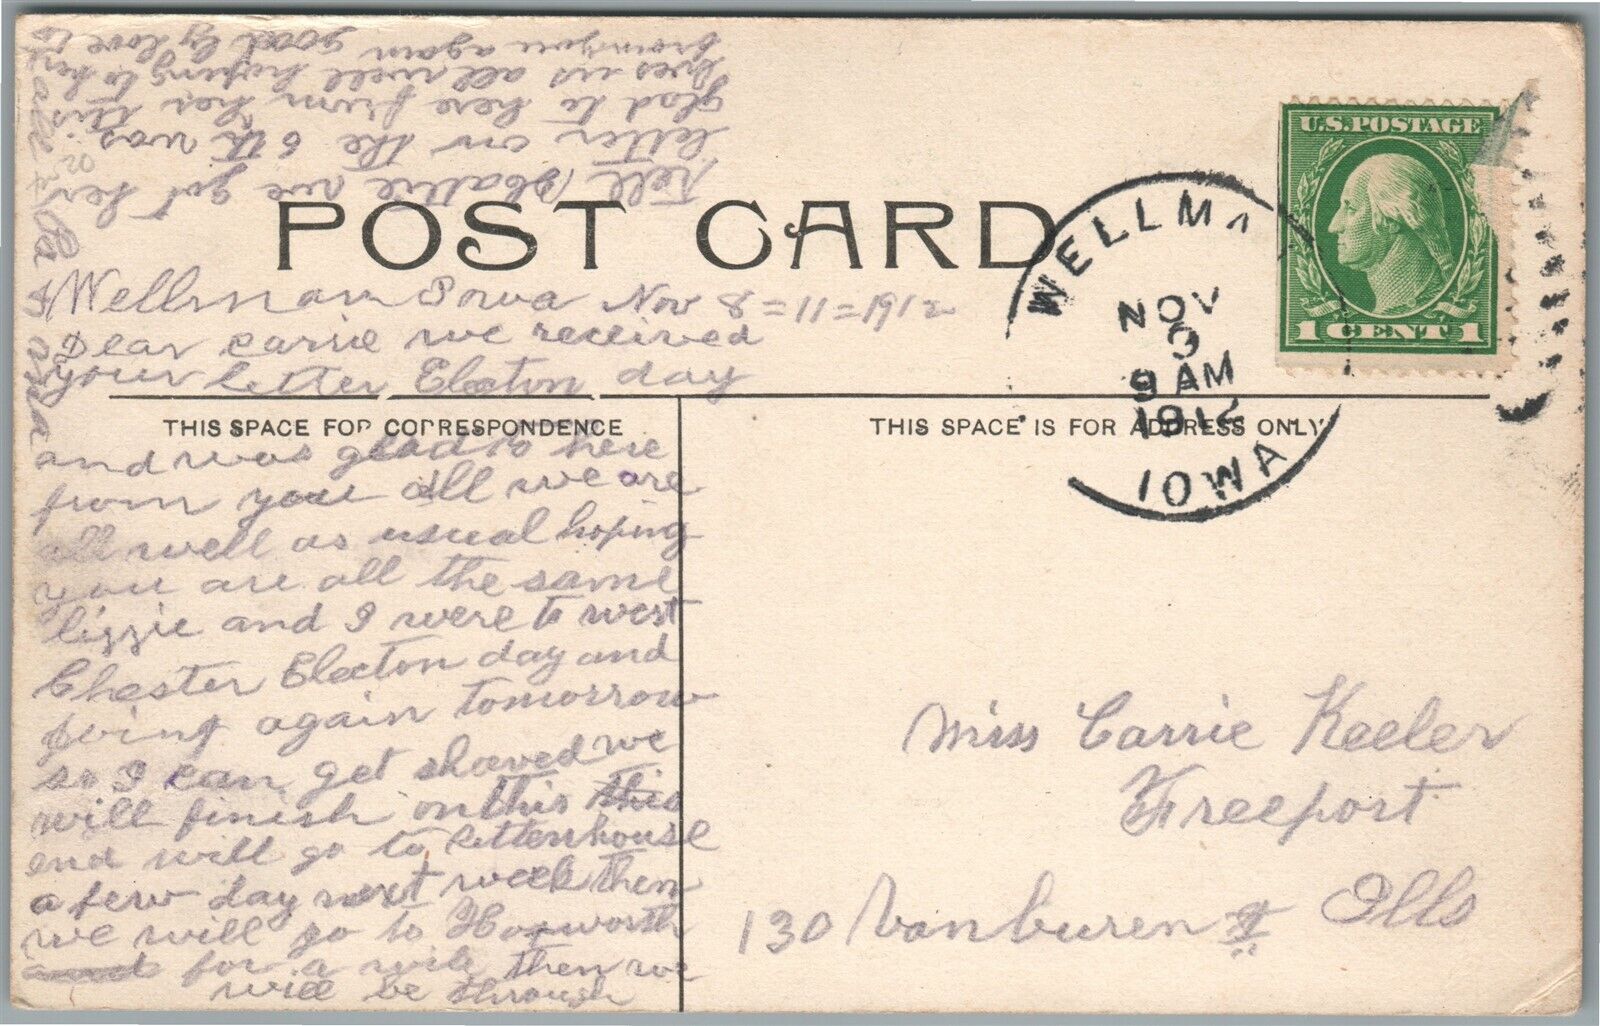 POST CARD
Wellman Iowa Nov 8=11=1912
Dear Carrie we received
your letter Electon day
THIS SPACE FOR CORRESPONDENCE
and was glad to here
from you all we are
all well as usual hoping
you are all the same
lizzie and I were to west
Chester Electon day and
going again tomorrow
so I can get shaved we
will finish on this this
end will go to
a few day next week then
we will go to
for a wile then we
will be through
Tell we got her
letter on the 6th was
glad to here from her this
lves us all well hoping to here
from you again good by love to
all
U.S. POSTAGE
1 CENT 1
WELLMA
NOV
9 AM
1912
IOWA
THIS SPACE IS FOR ADDRESS ONLY
Miss Carrie Keeler
Freeport
130 Vanburen st Ills